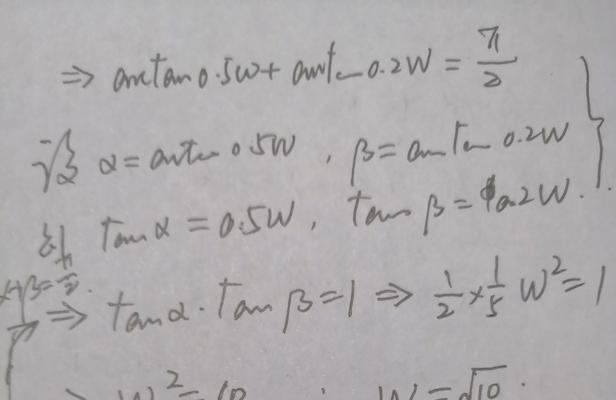 ⇒ arctan0.5W + arctan0.2W = π/2
设 α = arctan 0.5W , β = arctan 0.2W
则 tan α = 0.5W , tan β = 0.2W .
α+β=π/2 . ⇒ tan α · tan β = 1 ⇒ 1/2 × 1/5 W² = 1
⇒ W² = 10 ∴ W = √10 .